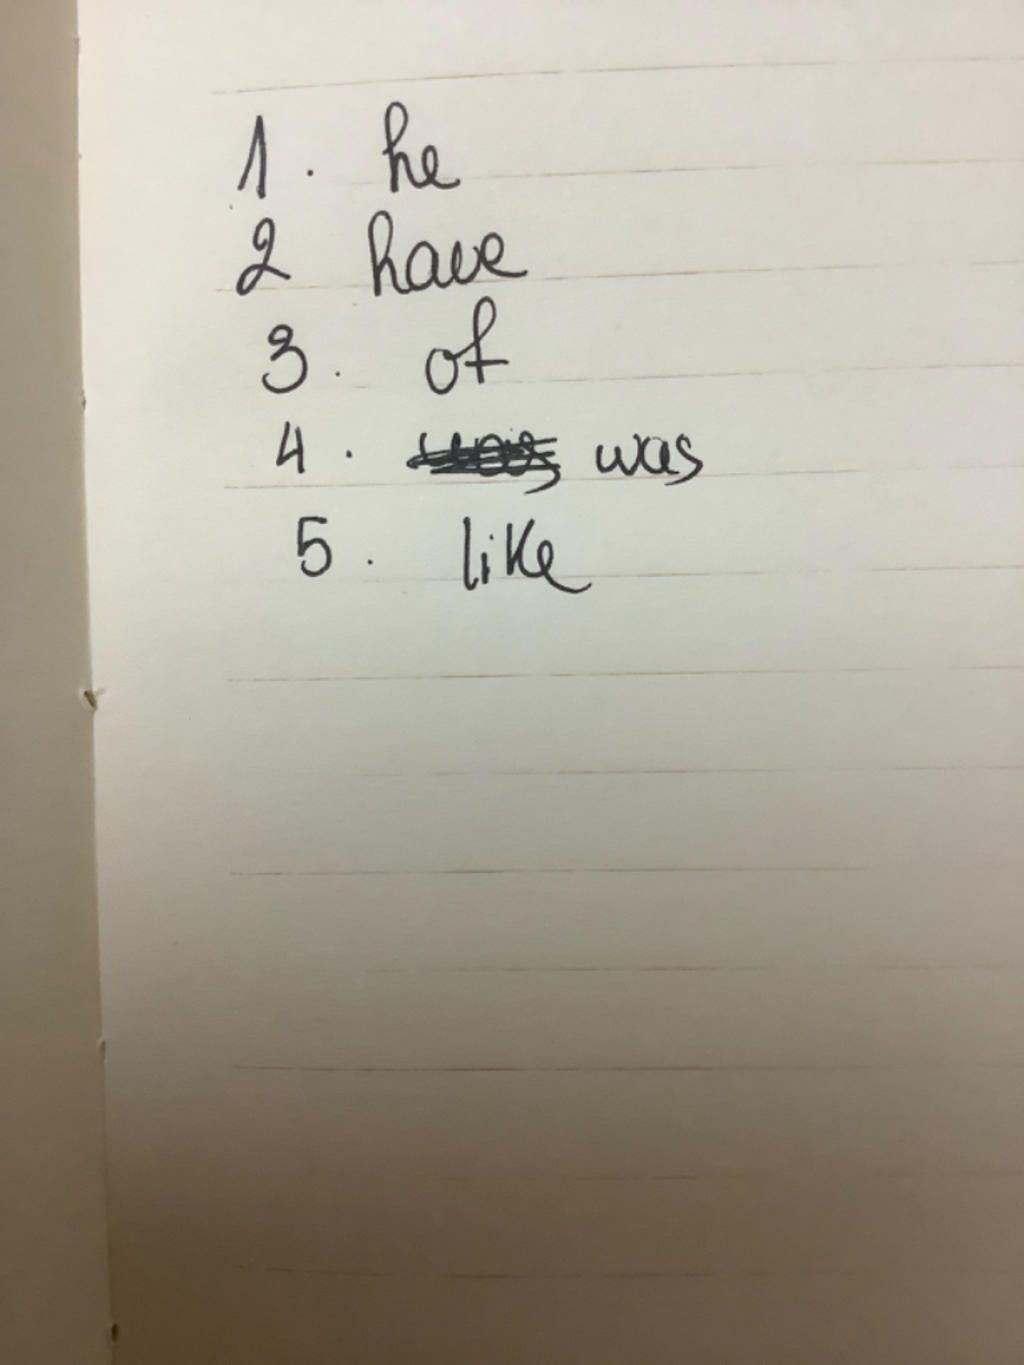 1. he
2 have
3. of
4. was
5. like